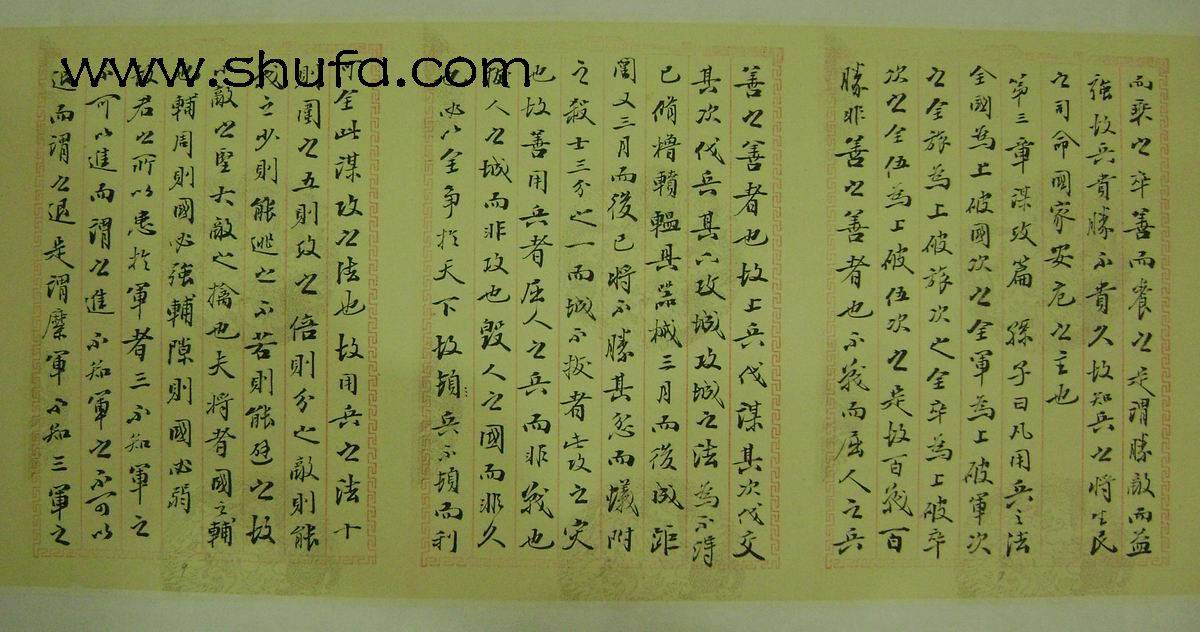 www.shufa.com
而乘之卒善而養之是謂勝敵而益
強故兵貴勝不貴久故知兵之將生民
之司命國家安危之主也
第三章謀攻篇 孫子曰凡用兵之法
全國為上破國次之全軍為上破軍次
之全旅為上破旅次之全卒為上破卒
次之全伍為上破伍次之是故百戰百
勝非善之善者也不戰而屈人之兵
善之善者也故上兵伐謀其次伐交
其次伐兵其下攻城攻城之法為不得
已脩櫓轒轀具器械三月而後成距
闉又三月而後已將不勝其忿而蟻附
之殺士三分之一而城不拔者此攻之災
也故善用兵者屈人之兵而非戰也
拔人之城而非攻也毀人之國而非久
也必以全爭於天下故頓兵不頓而利
可全此謀攻之法也故用兵之法十
則圍之五則攻之倍則分之敵則能
戰之少則能逃之不若則能避之故
小敵之堅大敵之擒也夫將者國之輔
也輔周則國必強輔隙則國必弱
故君之所以患於軍者三不知軍之
不可以進而謂之進不知軍之不可以
退而謂之退是謂縻軍不知三軍之